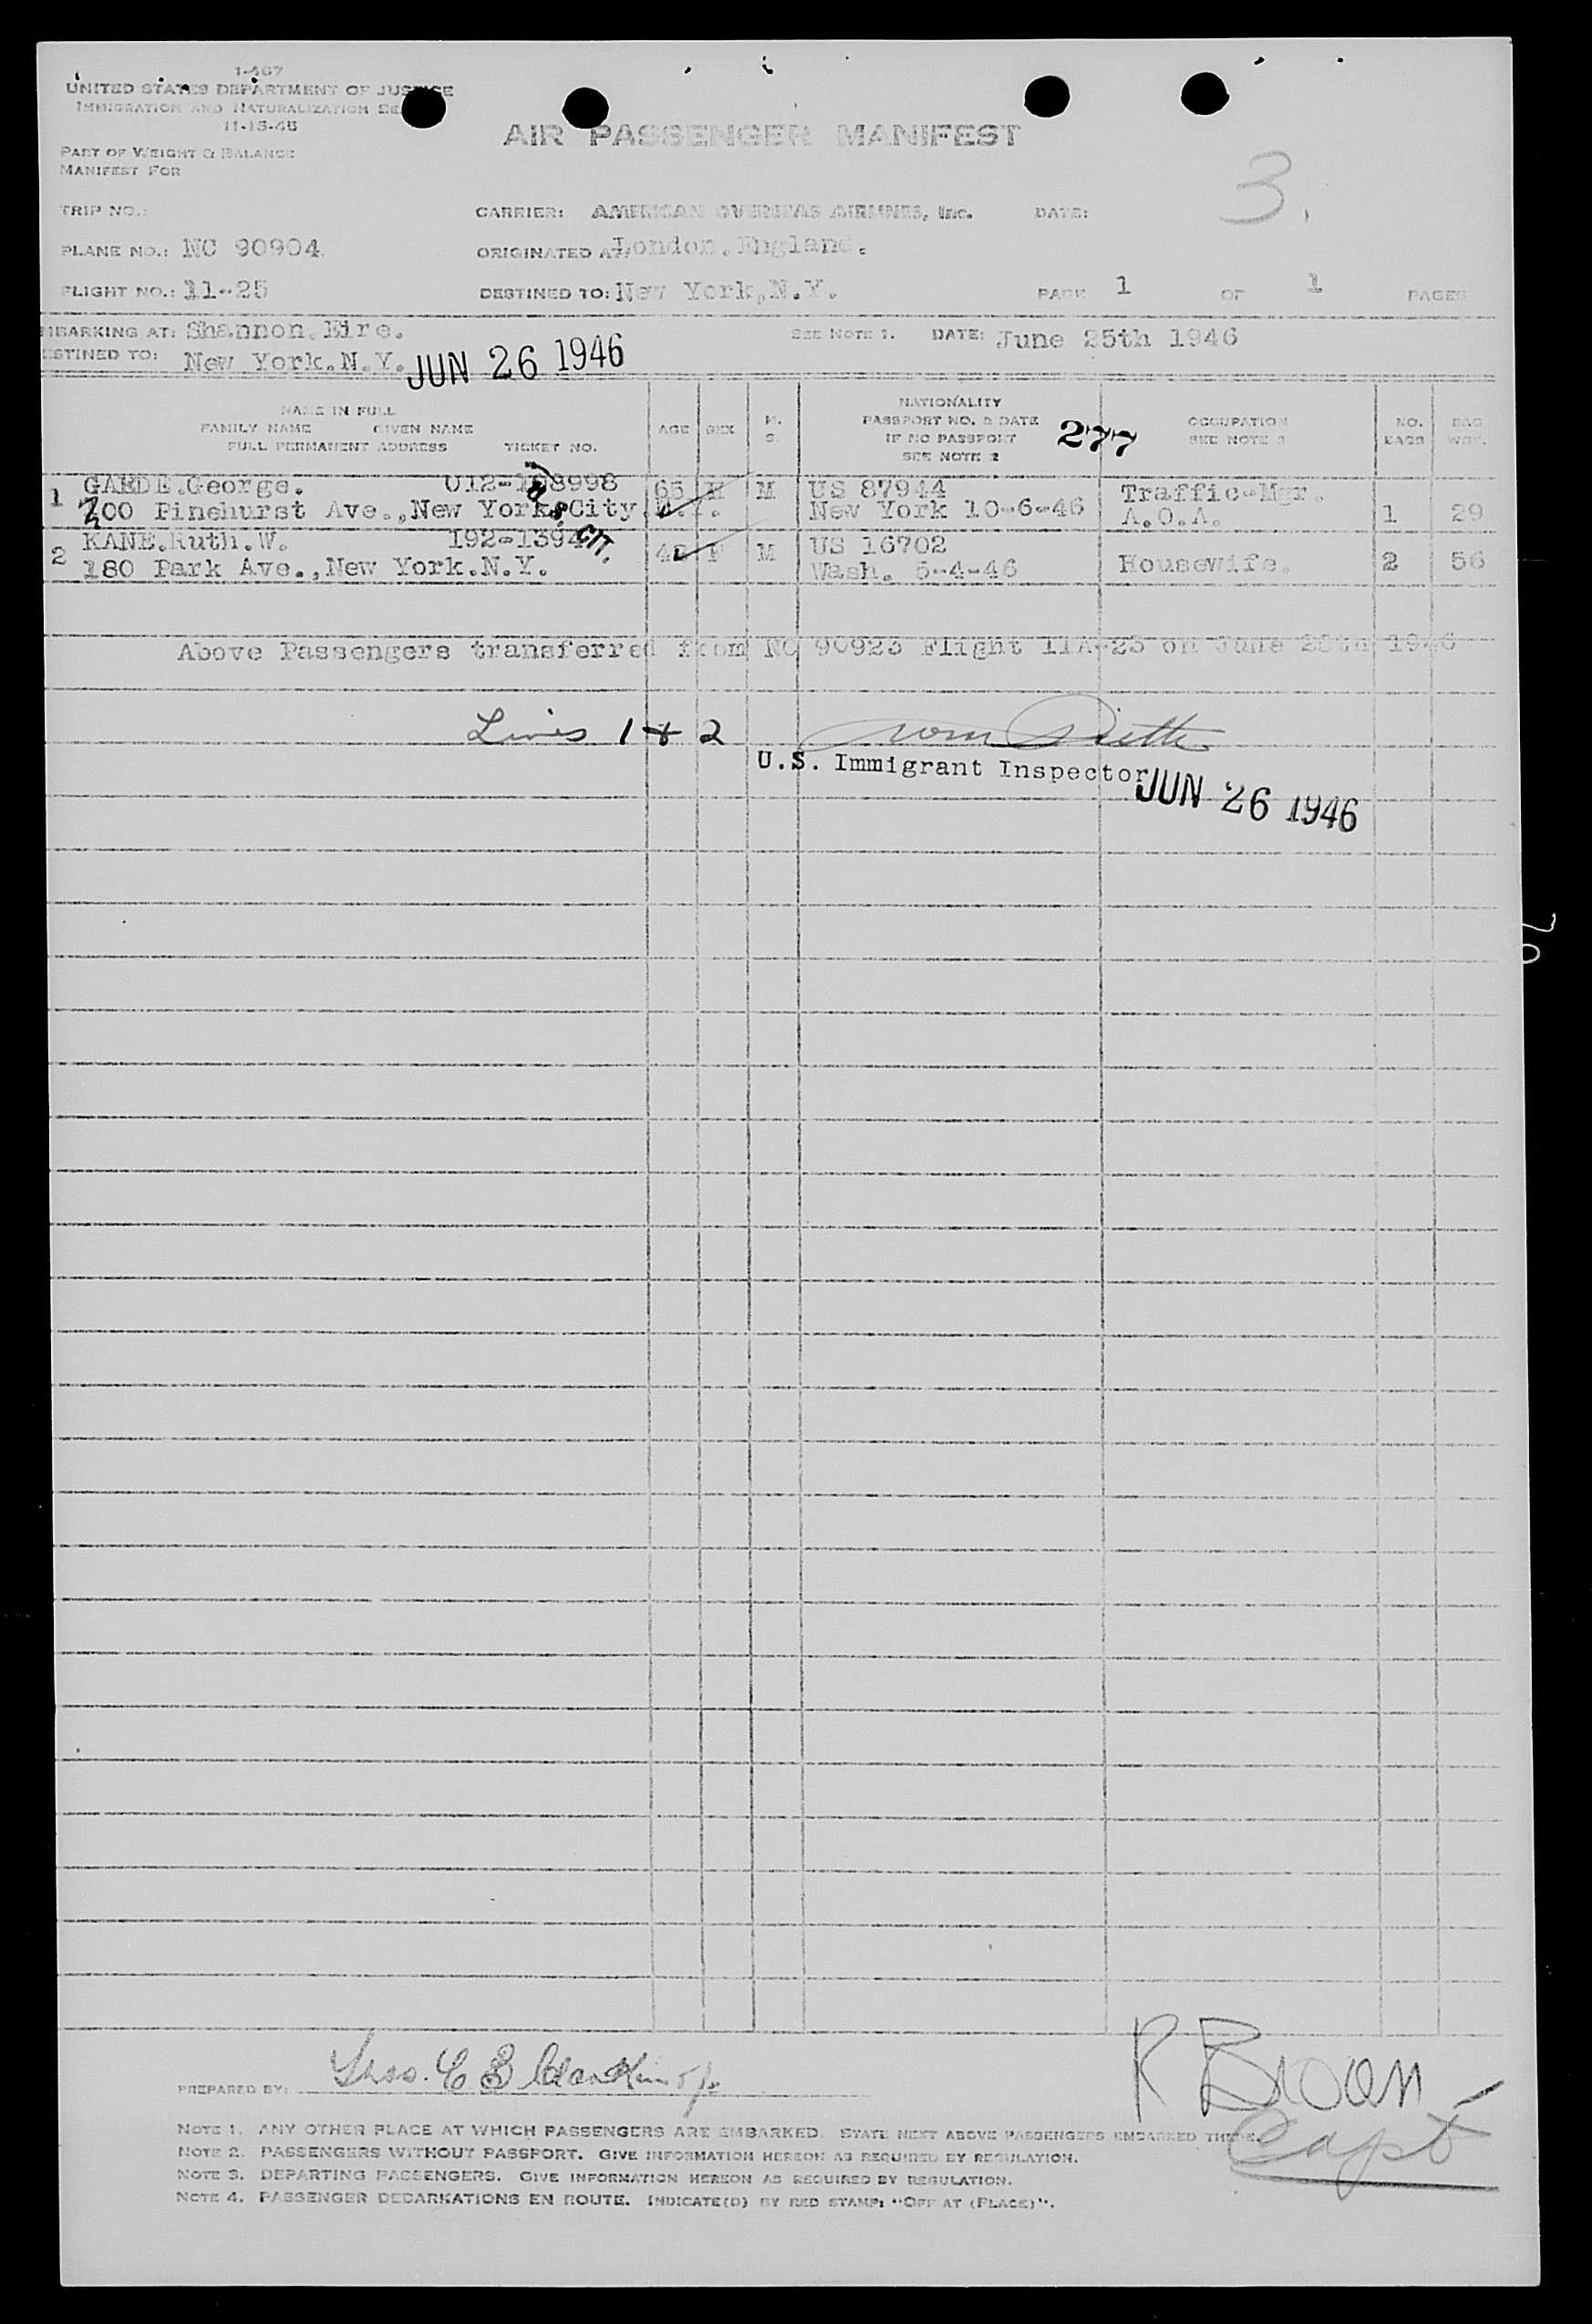 1-467
UNITED STATES DEPARTMENT OF JUSTICE
IMMIGRATION AND NATURALIZATION SE
11-15-45
AIR PASSENGER MANIFEST
PART OF WEIGHT & BALANCE
MANIFEST FOR
3.
TRIP NO.:
CARRIER: AMERICAN OVERSEAS AIRLINES, Inc.
DATE:
PLANE NO.: NC 90904
ORIGINATED AT: London.England.
FLIGHT NO.: 11-25
DESTINED TO: New York,N.Y.
PAGE 1 OF 1 PAGES
MBARKING AT: Shannon.Eire.
SEE NOTE 1. DATE: June 25th 1946
ESTINED TO: New York.N.Y. JUN 26 1946
NAME IN FULL
FAMILY NAME GIVEN NAME
FULL PERMANENT ADDRESS TICKET NO.
AGE SEX M. S.
NATIONALITY
PASSPORT NO. & DATE
IF NO PASSPORT
SEE NOTE 2
277
OCCUPATION
SEE NOTE 3
NO. BAGS
BAG WGT.
1 GAEDE.George. 012-108998 65 M M US 87944 Traffic-Mgr.
200 Pinehurst Ave.,New York City.N.Y. New York 10-6-46 A.O.A. 1 29
U.S. CIT.
2 KANE.Ruth.W. 192-1394 42 F M US 16702
180 Park Ave.,New York.N.Y. Wash. 5-4-46 Housewife. 2 56
Above Passengers transferred from NC 90923 Flight 11A-23 on June 25th 1946
Lines 1 & 2
U.S. Immigrant Inspector
JUN 26 1946
70
PREPARED BY:
R Brown
Capt
NOTE 1. ANY OTHER PLACE AT WHICH PASSENGERS ARE EMBARKED. STATE NEXT ABOVE PASSENGERS EMBARKED THERE.
NOTE 2. PASSENGERS WITHOUT PASSPORT. GIVE INFORMATION HEREON AS REQUIRED BY REGULATION.
NOTE 3. DEPARTING PASSENGERS. GIVE INFORMATION HEREON AS REQUIRED BY REGULATION.
NOTE 4. PASSENGER DEBARKATIONS EN ROUTE. INDICATE(D) BY RED STAMP: "OFF AT (PLACE)".